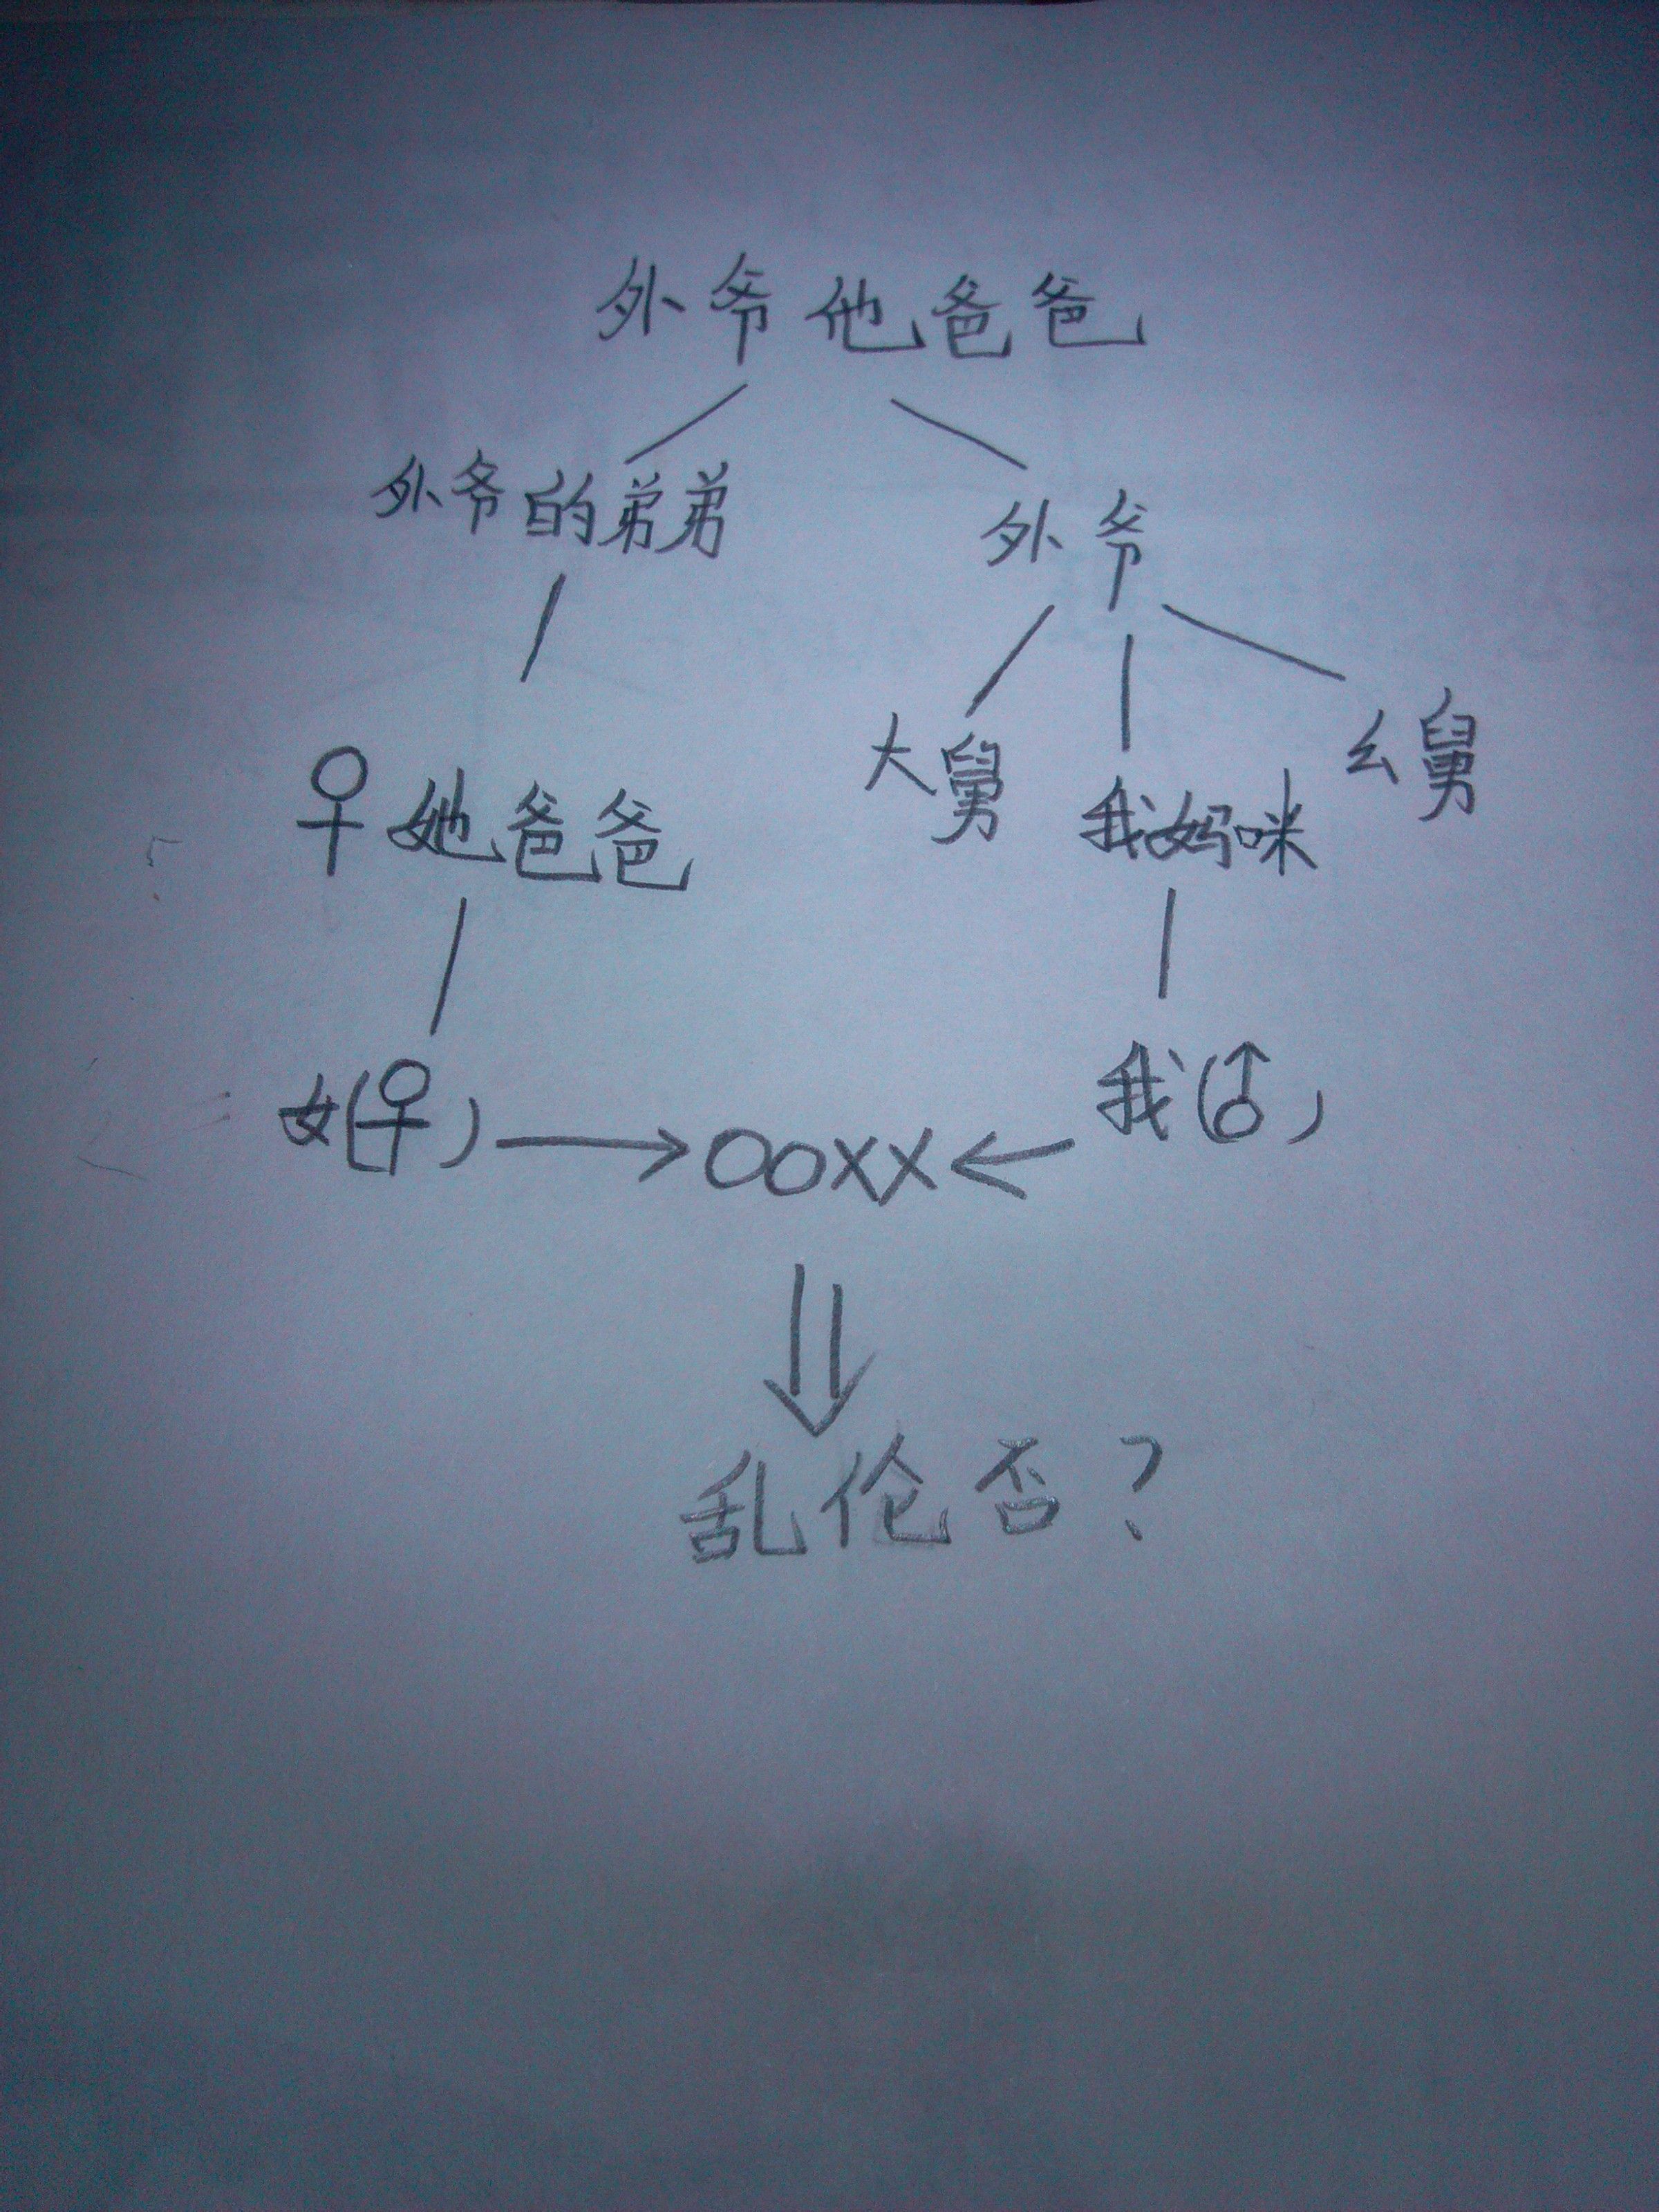 外爷他爸爸
外爷的弟弟
外爷
♀她爸爸
大舅
我妈咪
幺舅
女(♀)
OoXX
我(♂)
乱伦否?